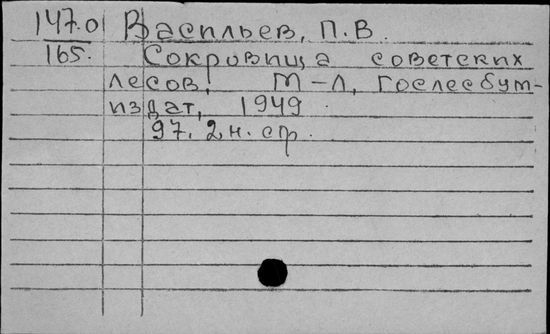 147.0 Васильев, П.В.
165. Сокровища советских
лесов, М-Л, Гослесбум-
издат, 1949
97. 2н. ср.